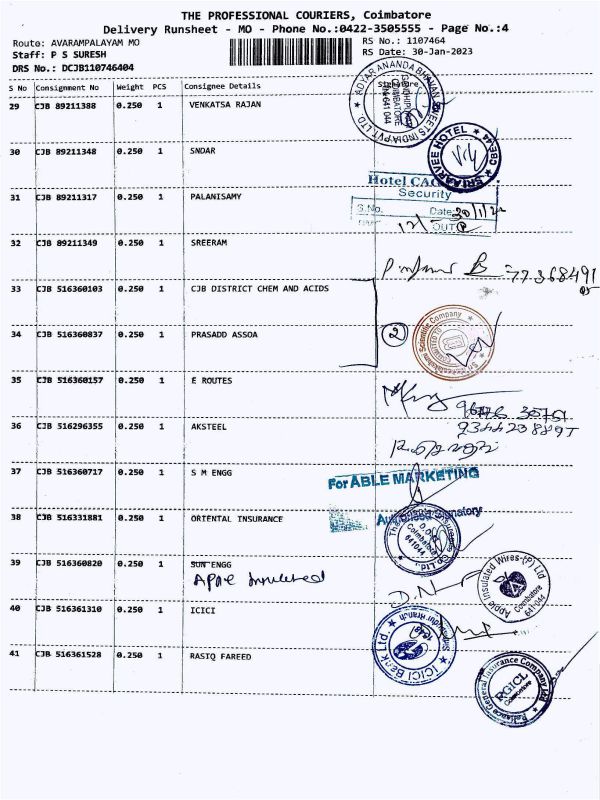 THE PROFESSIONAL COURIERS, Coimbatore
Delivery Runsheet - MO - Phone No.:0422-3505555 - Page No.:4
Route: AVARAMPALAYAM MO RS No.: 1107464
Staff: P S SURESH RS Date: 30-Jan-2023
DRS No.: DCJB110746404
S No Consignment No Weight PCS Consignee Details Signature
29 CJB 89211388 0.250 1 VENKATSA RAJAN
ADYAR ANANDA BHAVAN SWEETS INDIA PVT LTD
COIMBATORE
641 044
30 CJB 89211348 0.250 1 SNDAR
SRI AARVEE HOTEL CBE-44
31 CJB 89211317 0.250 1 PALANISAMY
Hotel
Security
S.No. Date 30/1/
OUT
32 CJB 89211349 0.250 1 SREERAM
77 368491
33 CJB 516360103 0.250 1 CJB DISTRICT CHEM AND ACIDS
34 CJB 516360837 0.250 1 PRASADD ASSOA
2
Scientific Company
35 CJB 516360157 0.250 1 E ROUTES
36 CJB 516296355 0.250 1 AKSTEEL
37 CJB 516360717 0.250 1 S M ENGG
For ABLE MARKETING
Authorised Signatory
38 CJB 516331881 0.250 1 ORIENTAL INSURANCE
Coimbatore
641044
39 CJB 516360820 0.250 1 SUN ENGG
Apple Insulated
Apple Insulated Wires-(P) Ltd
Coimbatore
641-044
40 CJB 516361310 0.250 1 ICICI
ICICI Bank Ltd
41 CJB 516361528 0.250 1 RASIQ FAREED
Reliance General Insurance Company Ltd
RGICL
Coimbatore